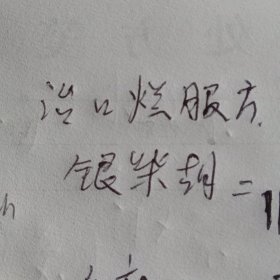 治口烂服方.
银柴胡=